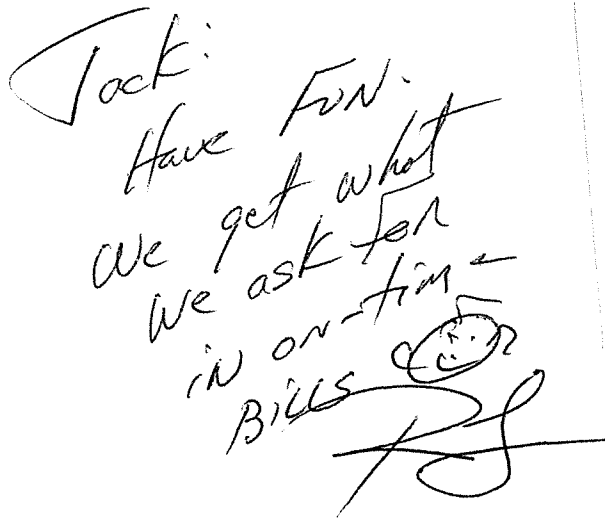 Jack:
Have FUN.
We get what
We ask for
in on-time
Bills